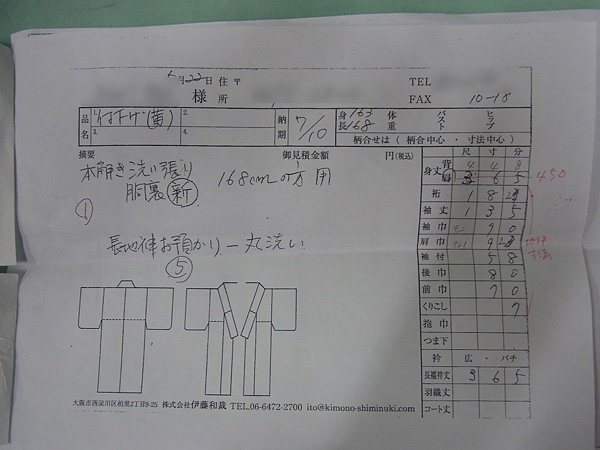 5月22日 住 〒 TEL
様 所 FAX 10-18
品名 1. 付下げ(黄) 2. 納期 7/10 身長 163 168 体重 バスト ヒップ
3. 4. 柄合せは(柄合中心・寸法中心)
摘要 御見積金額 円(税込) 尺 寸 分
本解き洗い張り 168cmの方用
胴裏 新
①
長地袢お預かり 一丸洗い
⑤
身丈 背 4 4
肩 3 6 5 450
裄 1 8
袖丈 1 3 5
袖巾 9 0
肩巾 9
袖付 5 8
後巾 8 0
前巾 7 0
くりこし 7
抱巾
つま下
衿 広・バチ
長襦袢丈 3 6 5
羽織丈
コート丈
大阪市西淀川区柏里2丁目9-25 株式会社伊藤和裁 TEL.06-6472-2700 ito@kimono-shiminuki.com